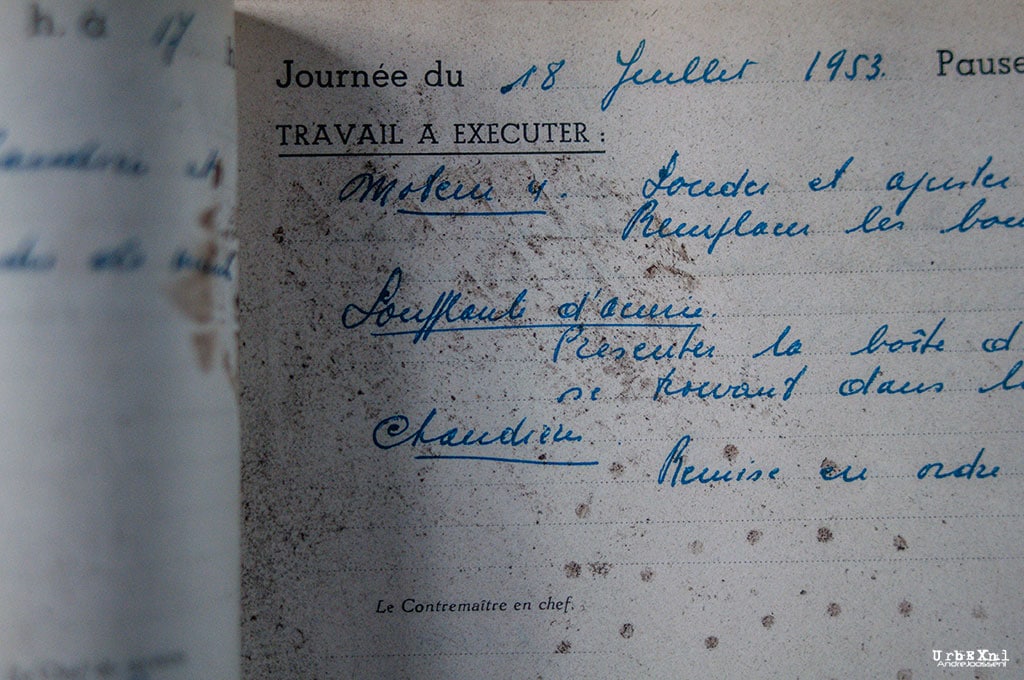 h. à 17
Journée du 18 Juillet 1953. Pause
TRAVAIL A EXECUTER :
Moteur 4. Souder et ajuster
Remplacer les
Soufflante d'aciérie.
Présenter la boîte d
se trouvant dans l
Chaudières
Remise en ordre
Le Contremaître en chef.
UrbEXnl
AndreJoosseni